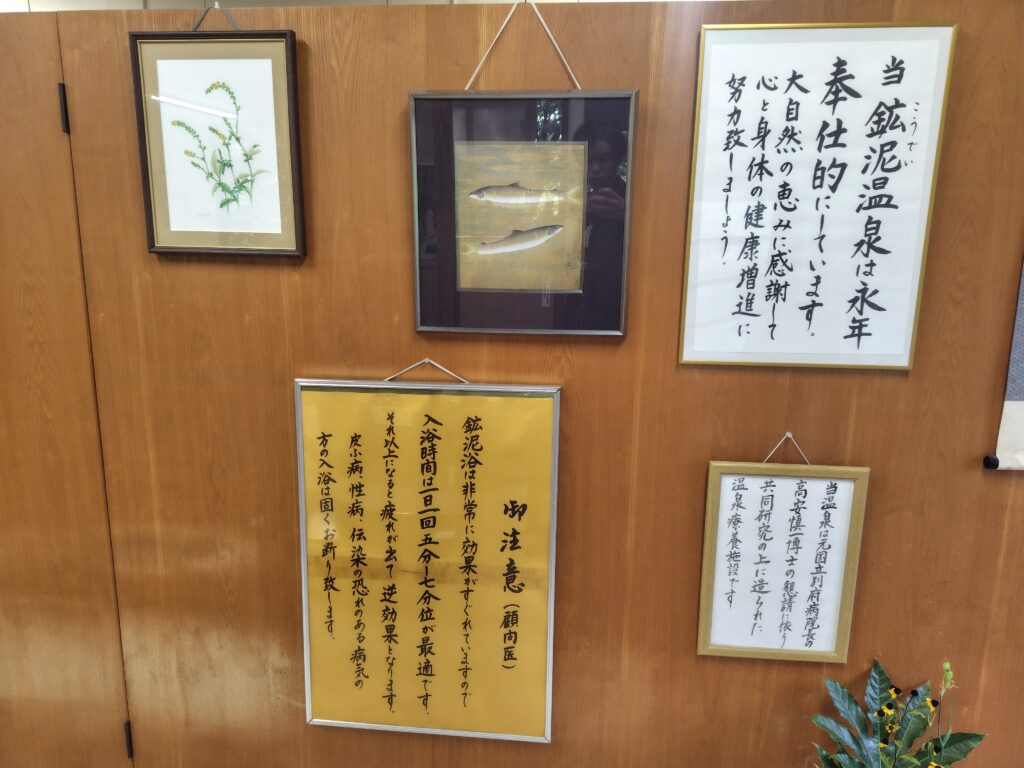 当鉱泥温泉は永年
こうでい
奉仕的にしています。
大自然の恵みに感謝して
心と身体の健康増進に
努力致しましょう。
御注意(顧問医)
鉱泥浴は非常に効果がすぐれていますので
入浴時間は一日一回五分〜七分位が最適です。
それ以上になると疲れが出て逆効果となります。
皮ふ病、性病、伝染の恐れのある病気の
方の入浴は固くお断り致します。
当温泉は元国立別府病院長の
高安慎一博士の懇請に依り
共同研究の上に造られた
温泉療養施設です